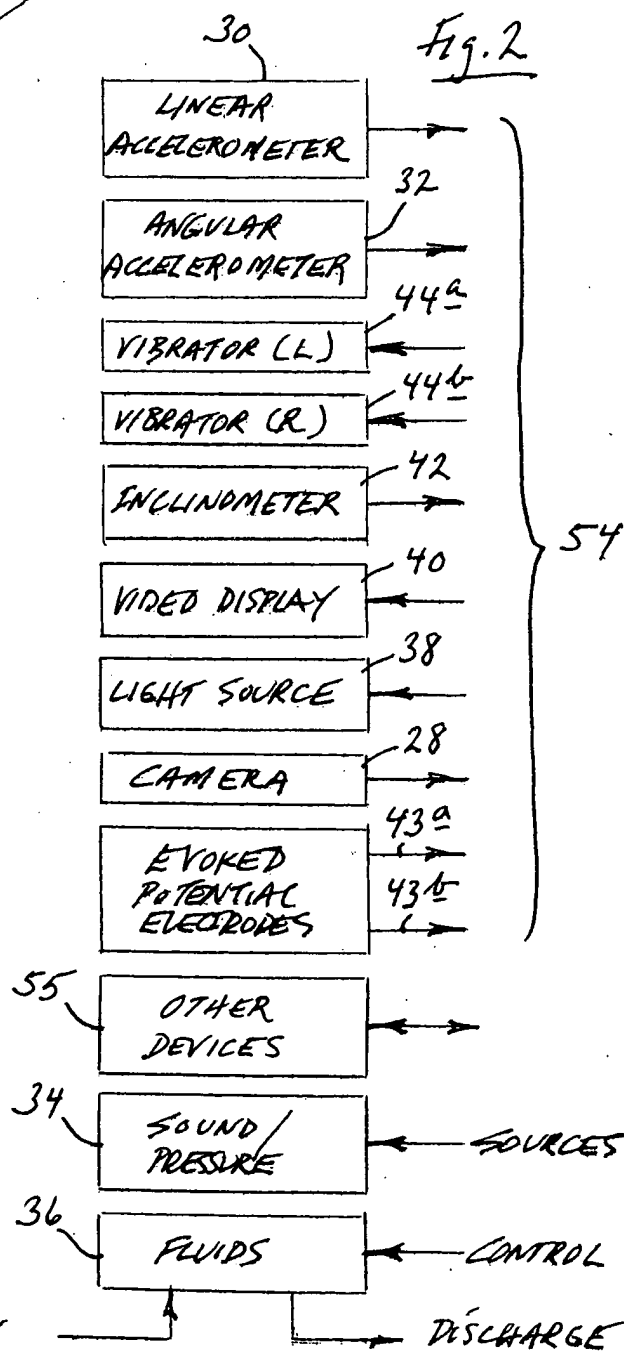 30
Fig. 2
LINEAR
ACCELEROMETER
32
ANGULAR
ACCELEROMETER
44a
VIBRATOR (L)
44b
VIBRATOR (R)
42
INCLINOMETER
54
40
VIDEO DISPLAY
38
LIGHT SOURCE
28
CAMERA
43a
EVOKED
POTENTIAL
ELECTRODES
43b
55
OTHER
DEVICES
34
SOUND/
PRESSURE
SOURCES
36
FLUIDS
CONTROL
DISCHARGE